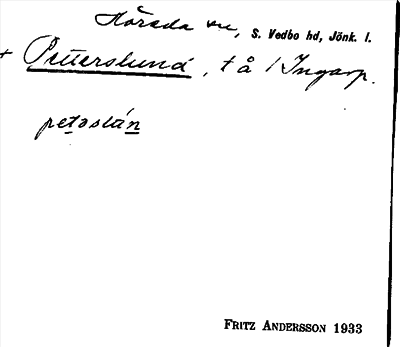 Hörsda sn, S. Vedbo hd, Jönk. l.
+ Petterslund, t å 1 Ingarp.
petəslán
FRITZ ANDERSSON 1933